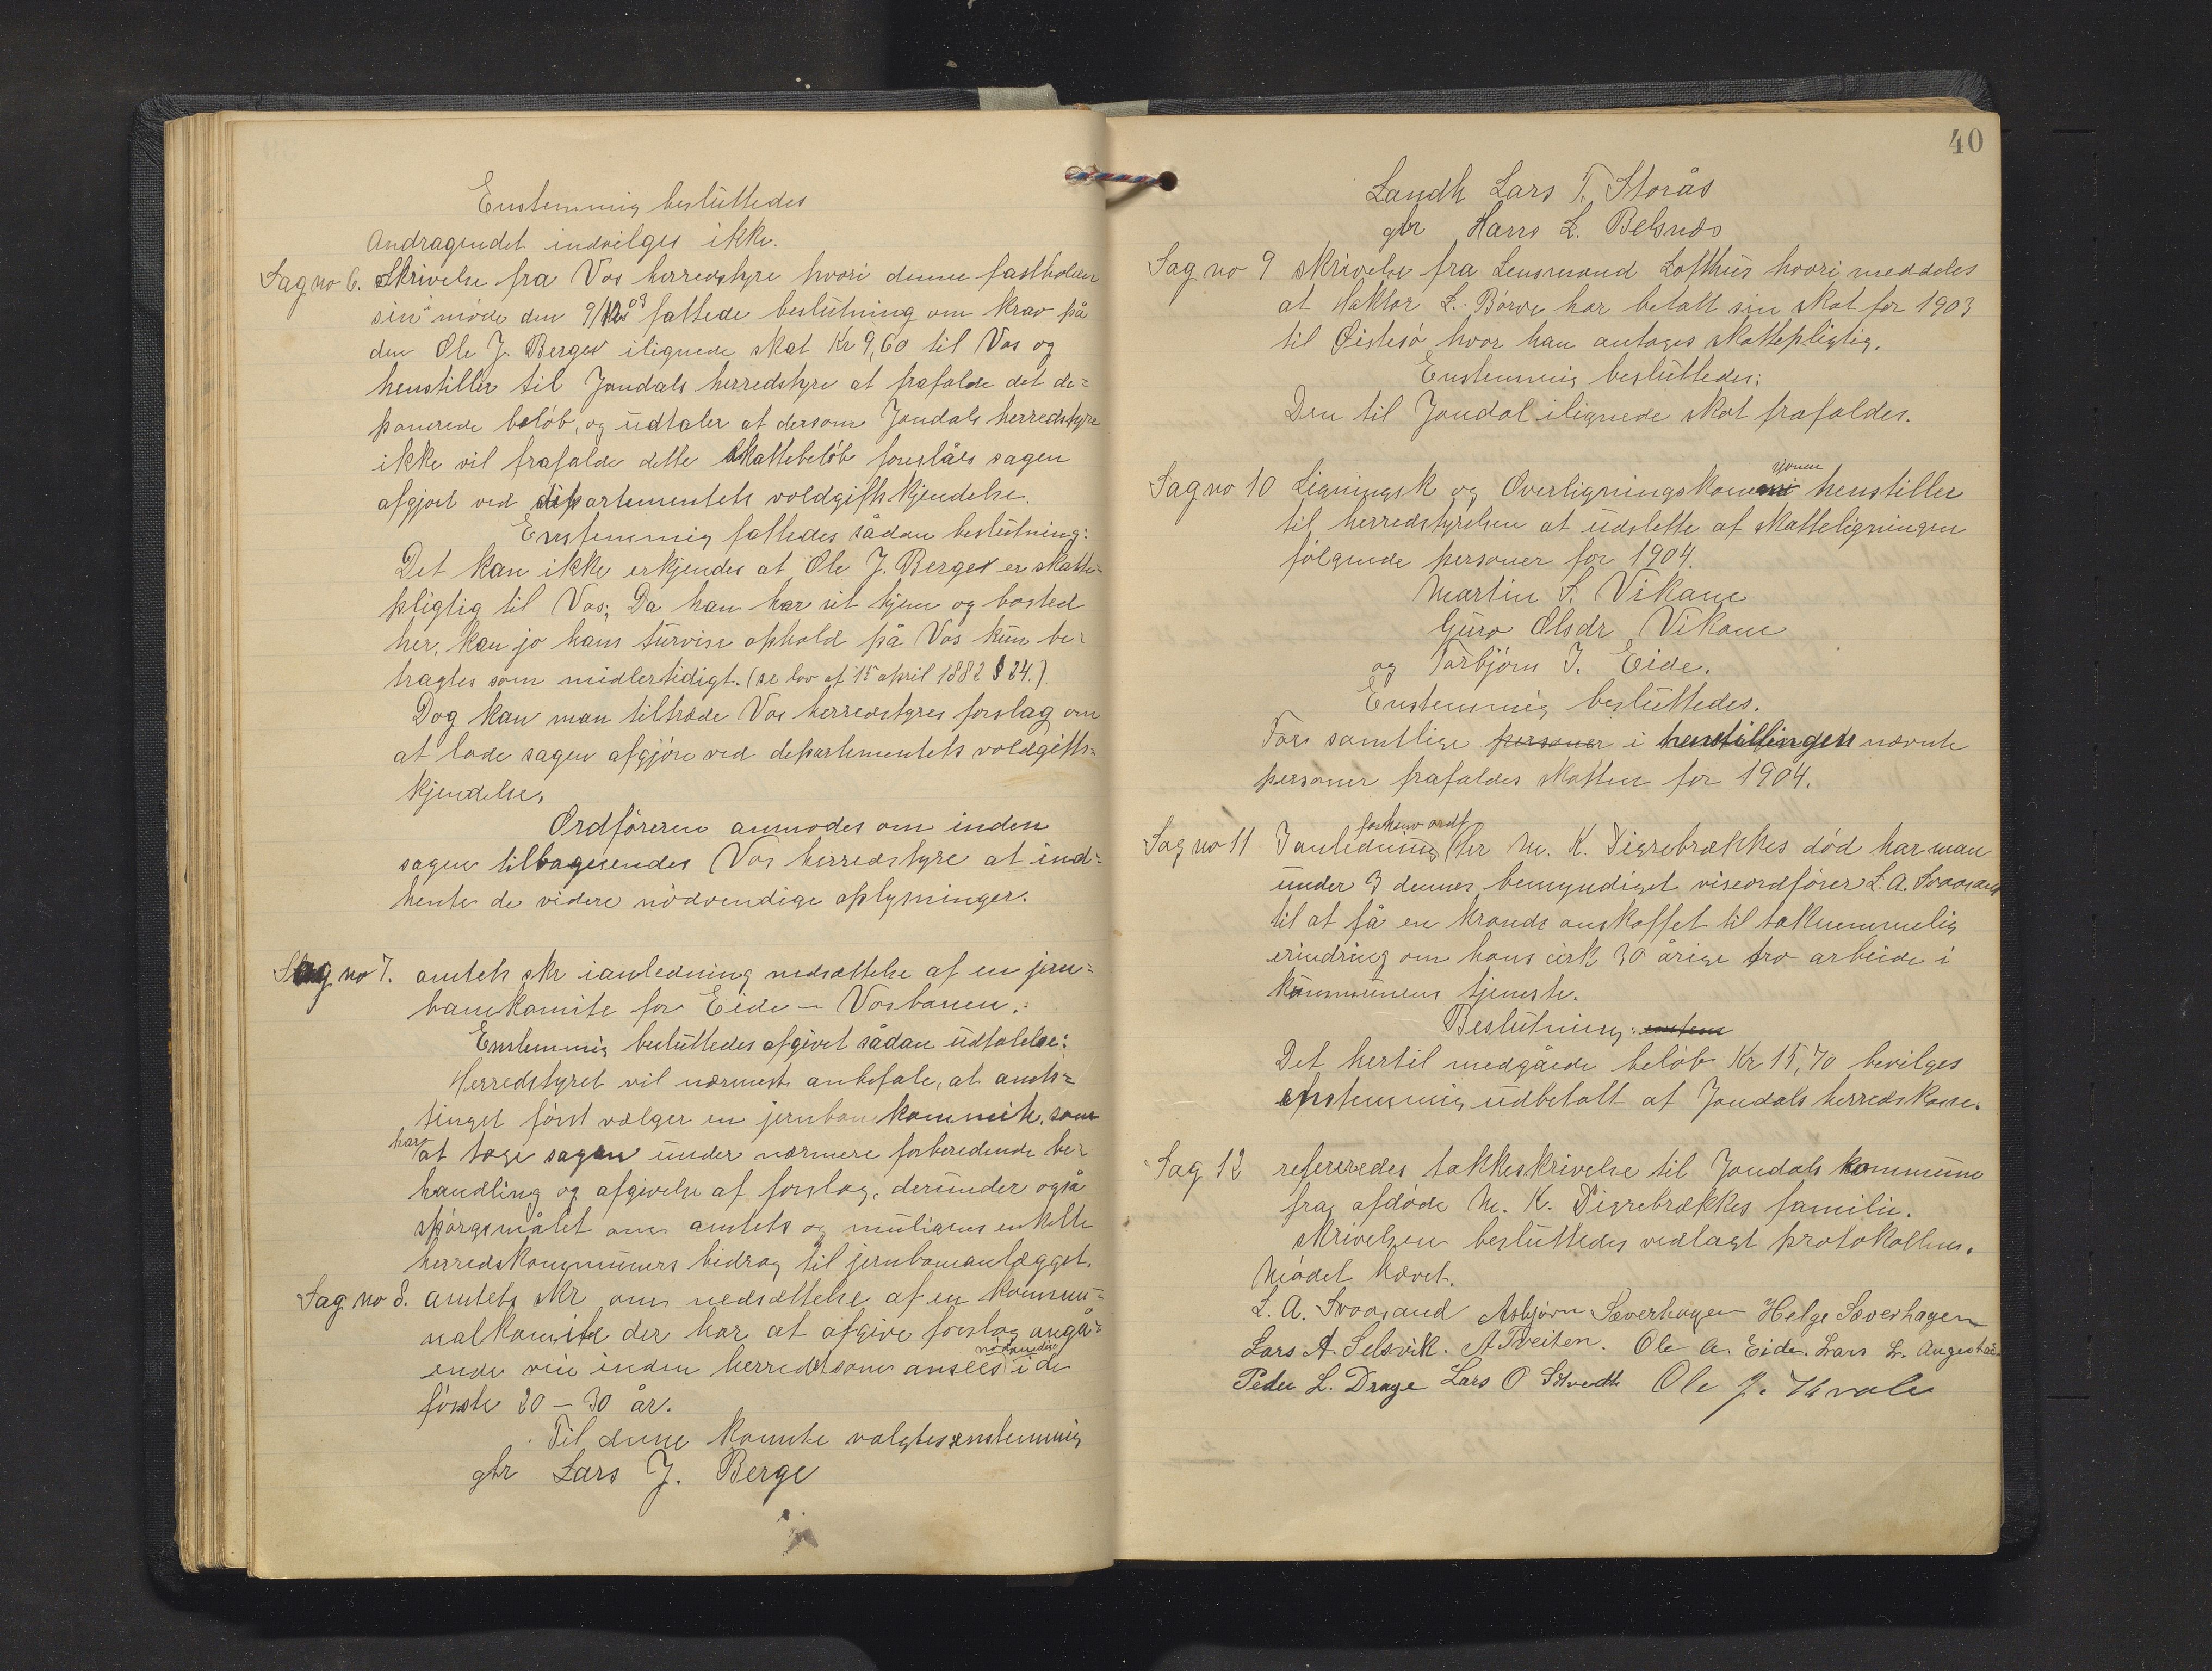 Enstemmig besluttedes
Andragendet indvilges ikke.
Sag no 6. Skrivelse fra Vos herredstyre hvori denne fastholder
sin i möde den 9/12 03 fattede beslutning om krav på
den Ole J. Berges ilignede skat Kr 9,60 til Vos og
henstiller til Jondals herredstyre at frafalde det de-
ponerede belöb, og udtaler at dersom Jondals herredstyre
ikke vil frafalde dette skattebelöb foreslåes sagen
afgjort ved departementets voldgiftskjendelse.
Enstemmig fattedes sådan beslutning:
Det kan ikke erkjendes at Ole J. Berges er skatte-
pligtig til Vos; Da han har sit hjem og bosted
her, kan jo hans turvise ophold på Vos kun be-
tragtes som midlertidigt. (se lov af 15 april 1882 § 24.)
Dog kan man tiltræde Vos herredstyres forslag om
at lade sagen afgjöre ved departementets voldgifts-
kjendelse.
Ordföreren anmodes om inden
sagen tilbagesendes Vos herredstyre at ind-
hente de videre nödvendige oplysninger.
Sag no 7. amtets skr ianledning nedsættelse af en jern-
banekomite for Eide - Vosbanen.
Enstemmig besluttedes afgivet sådan udtalelse:
Herredstyret vil nærmest anbefale, at amts-
tinget först vælger en jernbanekommite, som
har at tage sagen under nærmere forberedende be-
handling og afgivelse af forslag, derunder også
spörgsmålet om amtets og muligens enkelte
herredskommuners bidrag til jernbaneanlægget.
Sag no 8. amtets skr om nedsættelse af en kommu-
nalkomite der har at afgive forslag angå-
nödvendige
ende veie inden herredet som ansees i de
förste 20 - 30 år.
Til denne komite valgtes enstemmig
gbr Lars J. Berge
40
Landh Lars T. Storås
gbr Hans L. Belsnes
Sag no 9 skrivelse fra Lensmand Lofthus hvori meddeles
at Haktor L. Börve har betalt sin skat for 1903
til Östesö hvor han antages skattepligtig.
Enstemmig besluttedes:
Den til Jondal ilignede skat frafaldes.
sjonen
Sag no 10 Ligningsk og Overligningskommi henstiller
til herredstyrelsen at udslette af skatteligningen
fölgende personer for 1904.
Martin S. Vikane
Guro Olsdr Vikane
og Torbjörn J. Eide.
Enstemmig besluttedes.
For samtlige personer i henstillingen nævnte
personer frafaldes skatten for 1904.
forhenv ordf
Sag no 11 Ianledning hr M. K. Digrebrækkes död har man
under 3 dennes bemyndiget viseordförer L. A. Svaasand
til at få en krands anskaffet til taknemmelig
erindring om hans cirk 30 årige tro arbeide i
kommunens tjeneste.
Beslutning: enstem
Det hertil medgåede belöb Kr 15,70 bevilges
enstemmig udbetalt af Jondals herredskasse.
Sag 12 refereredes takkeskrivelse til Jondals kommune
fra afdöde M. K. Digrebrækkes familie.
skrivelsen besluttedes vedlagt protokollen.
Mödet hævet.
L. A. Svaasand Asbjörn Sæverhagen Helge Sæverhagen
Lars A. Selsvik. A Tveiten. Ole A. Eide. Lars L.
Peder L. Drage Lars O Ole J.